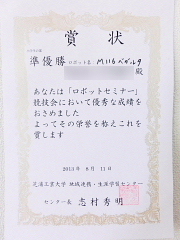 賞状
準優勝 ロボット名: M116ベガルタ
殿
あなたは「ロボットセミナー」
競技会において優秀な成績を
おさめました
よってその栄誉を称えこれを
賞します
2013年 8月 11日
芝浦工業大学 地域連携・生涯学習センター
センター長 志村秀明